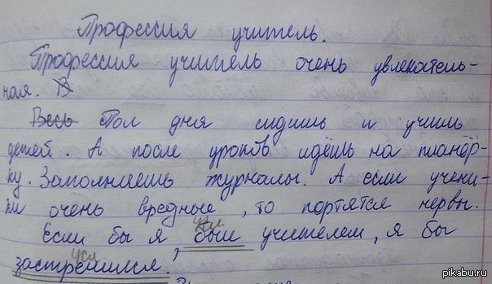 Профессия учитель.
Профессия учитель очень увлекатель-
ная. В
Весь Пол дня сидишь и учишь
детей. А после уроков идёшь на планёр-
ку. Заполняешь журналы. А если учени-
ки очень вредные, то портятся нервы.
усл.
Если бы я был учителем, я бы
усл
застрелился.
pikabu.ru